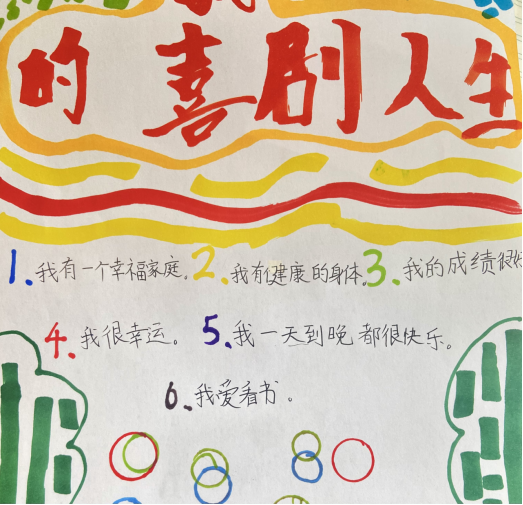 的喜剧人生
1.我有一个幸福家庭。2.我有健康的身体。3.我的成绩很好
4.我很幸运。5.我一天到晚都很快乐。
6.我爱看书。